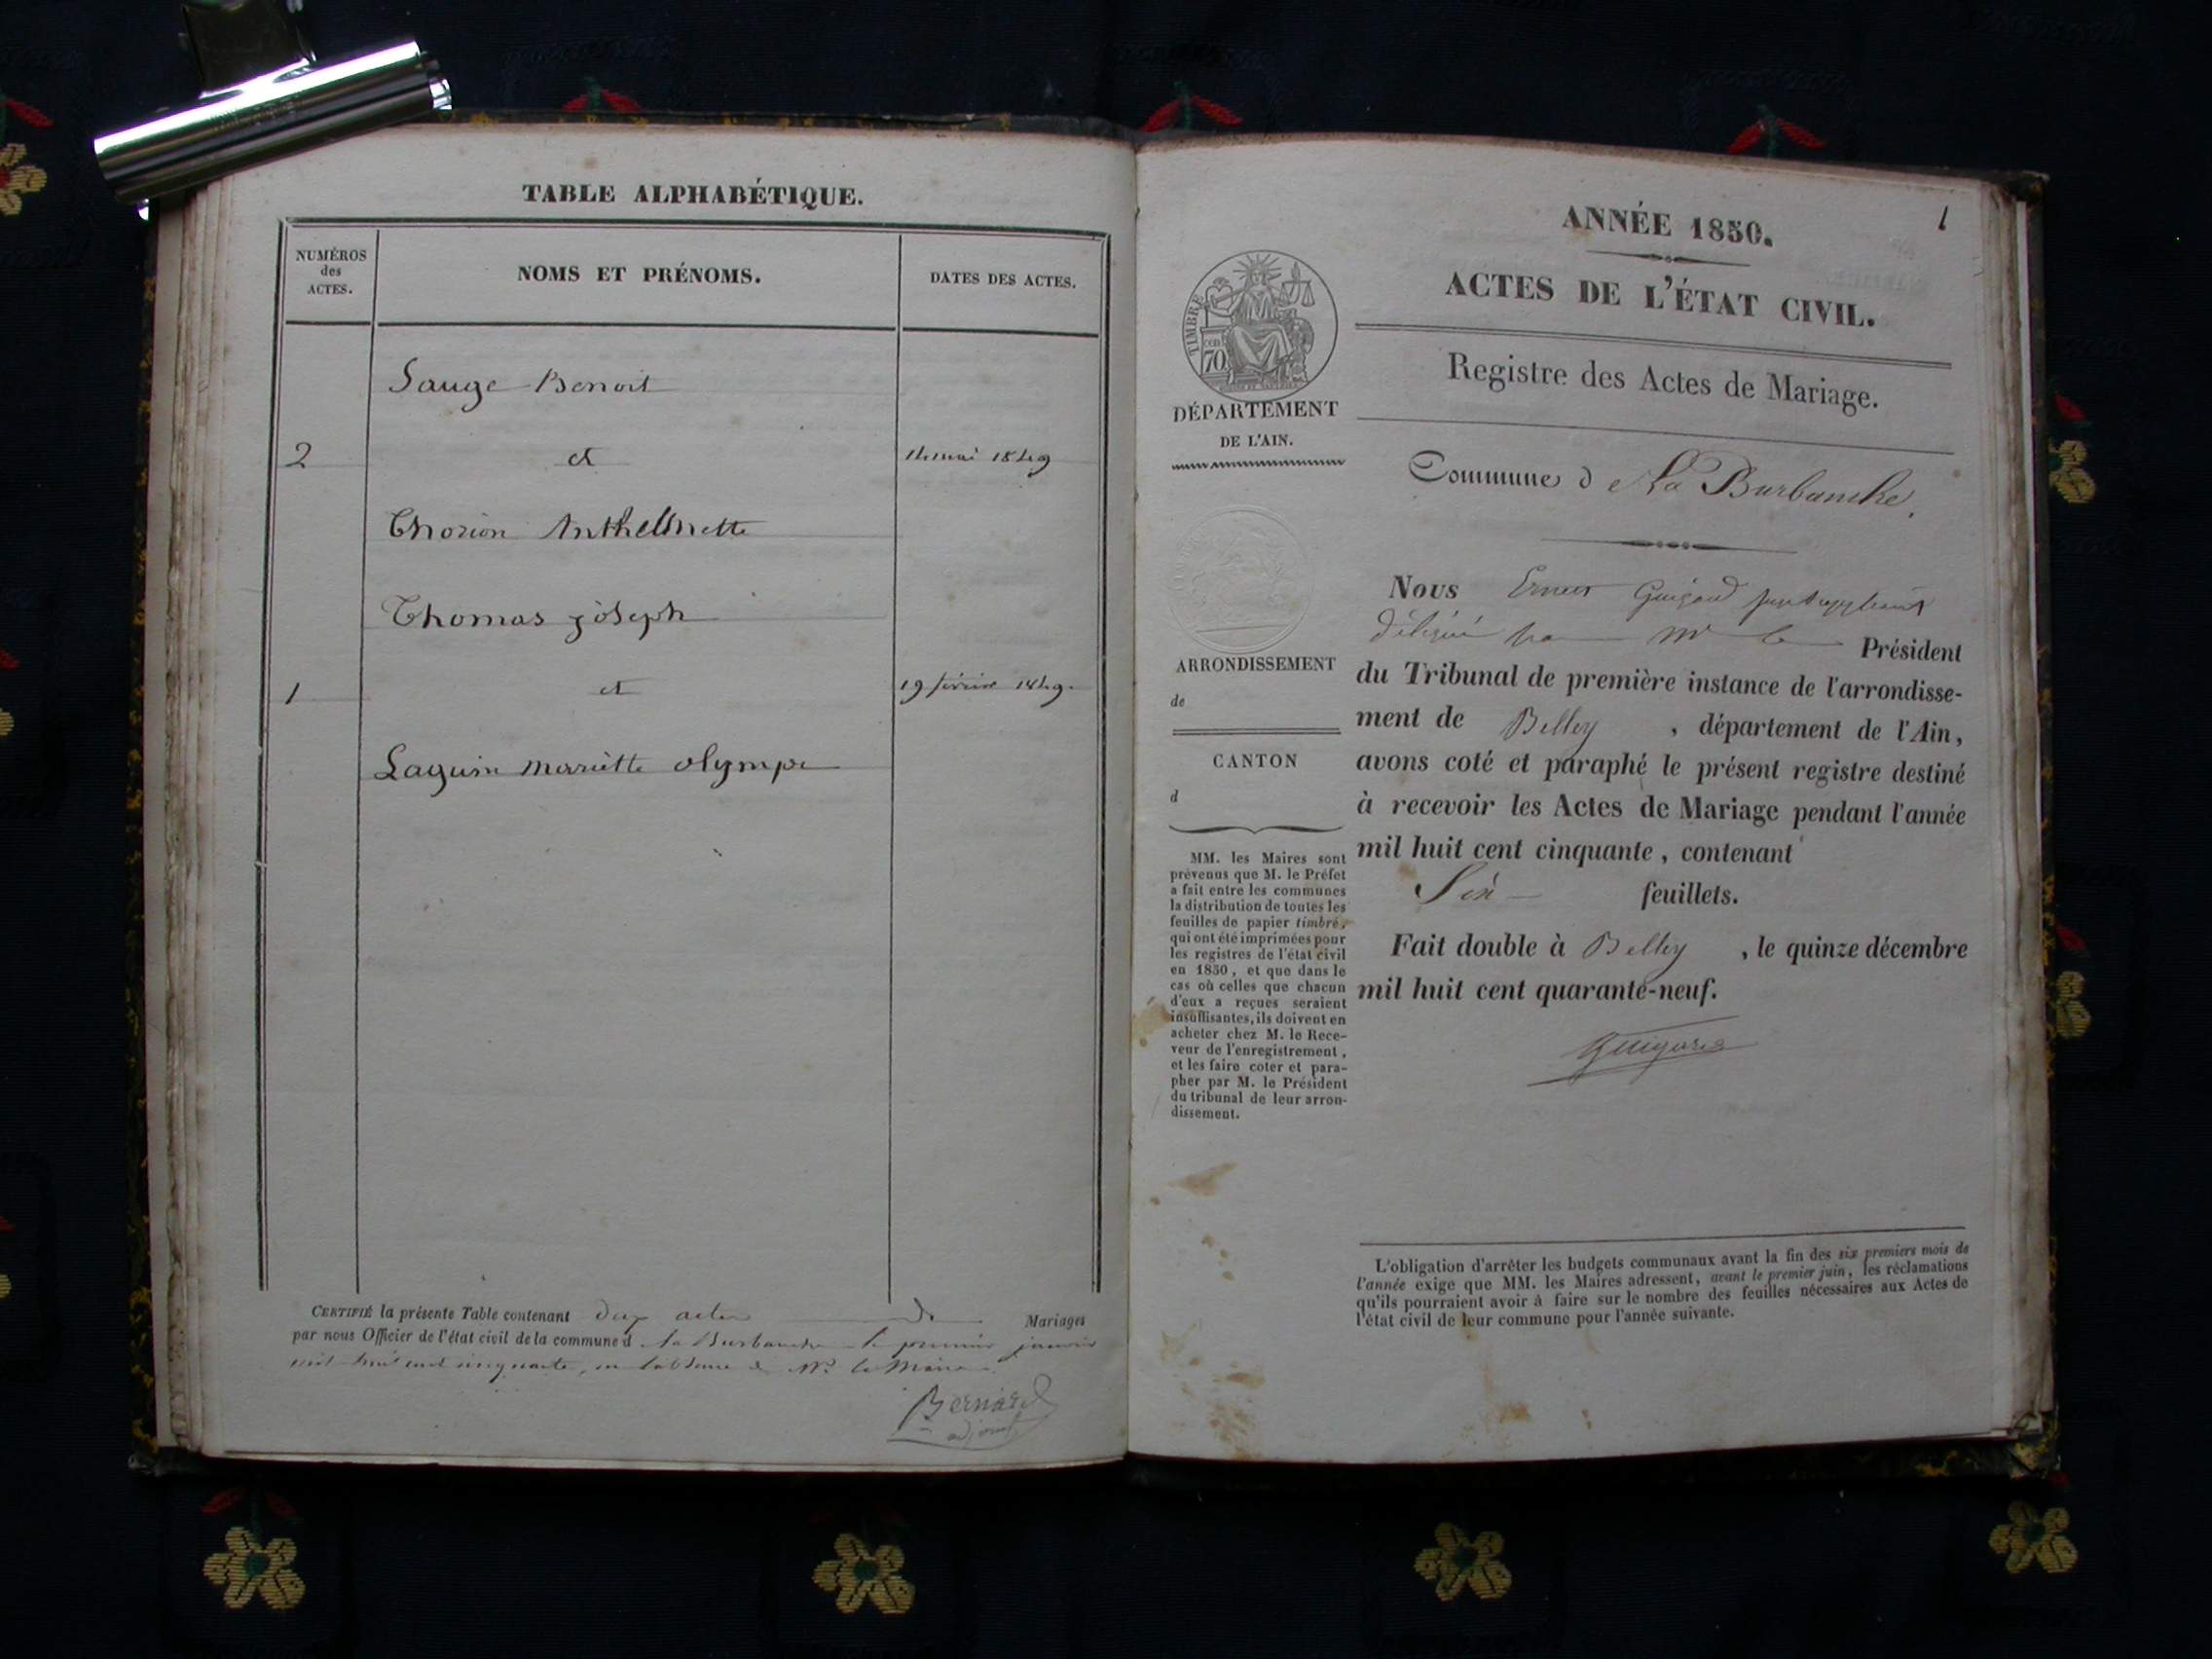 TABLE ALPHABÉTIQUE.
NUMÉROS
des
ACTES.
NOMS ET PRÉNOMS.
DATES DES ACTES.
Sauge Benoit
2 et 14 mai 1849
Thorion Anthelmette
Thomas joseph
1 et 19 février 1849.
Laguin mariette olympe
CERTIFIÉ la présente Table contenant deux actes de Mariages
par nous Officier de l'état civil de la commune d la Burbanche le premier janvier
mil huit cent cinquante, en l'absence de Mr le Maire
Bernard
adjoint
1
ANNÉE 1850.
ACTES DE L'ÉTAT CIVIL.
Registre des Actes de Mariage.
TIMBRE
70
DÉPARTEMENT
DE L'AIN.
Commune de La Burbanche.
ARRONDISSEMENT
de
CANTON
d
MM. les Maires sont
prévenus que M. le Préfet
a fait entre les communes
la distribution de toutes les
feuilles de papier timbré,
qui ont été imprimées pour
les registres de l'état civil
en 1850, et que dans le
cas où celles que chacun
d'eux a reçues seraient
insuffisantes, ils doivent en
acheter chez M. le Rece-
veur de l'enregistrement,
et les faire coter et para-
pher par M. le Président
du tribunal de leur arron-
dissement.
Nous Guigard juge suppléant
délégué par Mr le Président
du Tribunal de première instance de l'arrondisse-
ment de Belley, département de l'Ain,
avons coté et paraphé le présent registre destiné
à recevoir les Actes de Mariage pendant l'année
mil huit cent cinquante, contenant
Six feuillets.
Fait double à Belley, le quinze décembre
mil huit cent quarante-neuf.
Guigard
L'obligation d'arrêter les budgets communaux avant la fin des six premiers mois de
l'année exige que MM. les Maires adressent, avant le premier juin, les réclamations
qu'ils pourraient avoir à faire sur le nombre des feuilles nécessaires aux Actes de
l'état civil de leur commune pour l'année suivante.